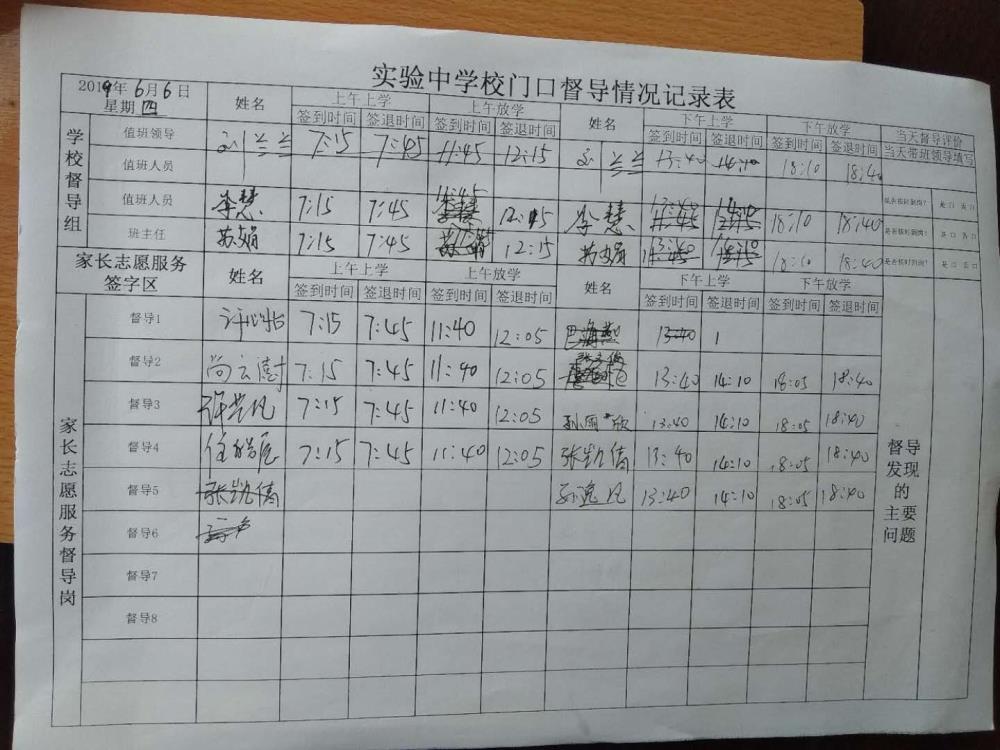 实验中学校门口督导情况记录表
2019年6月6日 星期四 姓名 上午上学 上午放学 姓名 下午上学 下午放学 当天督导评价
签到时间 签退时间 签到时间 签退时间 签到时间 签退时间 签到时间 签退时间 当天带班领导填写
学校督导组
值班领导 刘兰兰 7:15 7:45 11:45 12:15 刘兰兰 13:40 14:10 18:10 18:40
值班人员
值班人员 李慧 7:15 7:45 11:45 12:15 李慧 13:40 14:10 18:10 18:40 是否按时到岗? 是口 否口
班主任 苏娟 7:15 7:45 12:15 苏娟 13:40 14:10 18:10 18:40 是否按时到岗? 是口 否口
是否按时到岗? 是口 否口
家长志愿服务签字区 姓名 上午上学 上午放学 姓名 下午上学 下午放学
签到时间 签退时间 签到时间 签退时间 签到时间 签退时间 签到时间 签退时间
家长志愿服务督导岗
督导1 7:15 7:45 11:40 12:05 13:40
督导2 尚云澍 7:15 7:45 11:40 12:05 13:40 14:10 18:05 18:40
督导3 许艺凡 7:15 7:45 11:40 12:05 13:40 14:10 18:05 18:40
督导4 任皓辰 7:15 7:45 11:40 12:05 张凯倩 13:40 14:10 18:05 18:40
督导5 张凯倩 孙逸凡 13:40 14:10 18:05 18:40
督导6
督导7
督导8
督导发现的主要问题